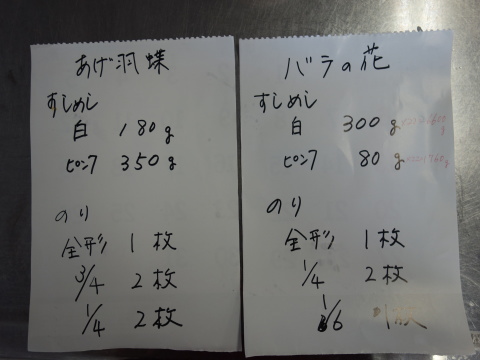 あげ羽蝶
すしめし
白 180g
ピンク 350g
のり
全形 1枚
3/4 2枚
1/4 2枚
バラの花
すしめし
白 300g
ピンク 80g
のり
全形 1枚
1/4 2枚
1/6 1枚